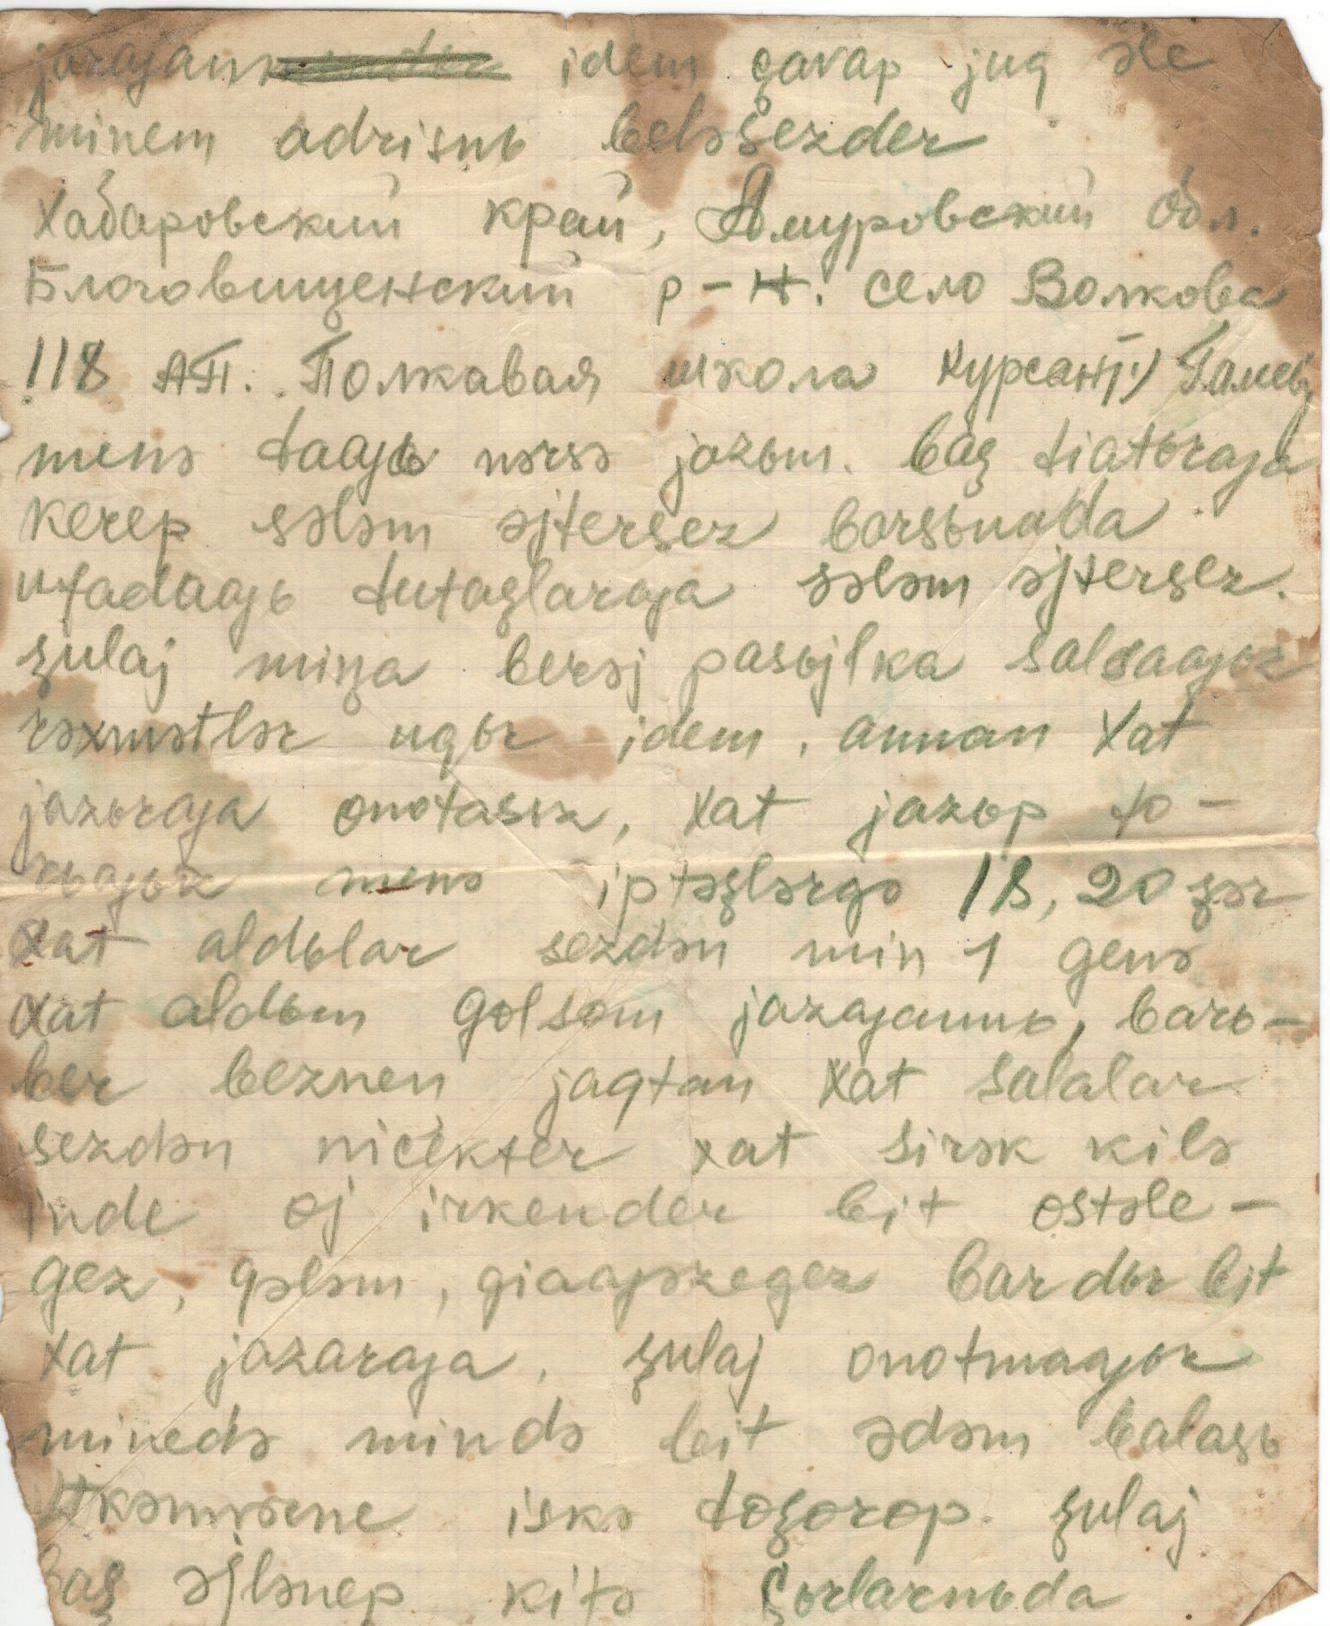 jazajann idem çavap juq əle
minem adrisnь beləsezder
Хабаровский край, Амуровский обл.
Благовищенский р-н. село Волкова
118 АП. Полкавая школа Курсант Галиев
menə taajь nərsə jazьm. baş tiatьraja
kerep sələm əjtersez barsьnada
ufadaajь tutaşlaraja sələm əjtersez.
şulaj miꞑa berəj pasьjlka salsaajьz
rəxmətlər uqьr idem, annan xat
jazьraja onotasьz, xat jazьp to-
rьajьz menə iptəşlərgə 18, 20 şər
xat aldьlar sezdən min 1 genə
xat aldьm golsom jazajannь, barь-
ber beznen jaqtan xat salalar
sezdən nicekter xat sirək kilə
inde oj irkender bit ostəle-
gez, qələm, giaajəzegez bardьr bit
xat jazaraja, şulaj onotmaajьz
minedə mində bit ədəm balasь
itkəmnəene iskə toşorop. şulaj
baş əjlənep kitə çorlarnьda